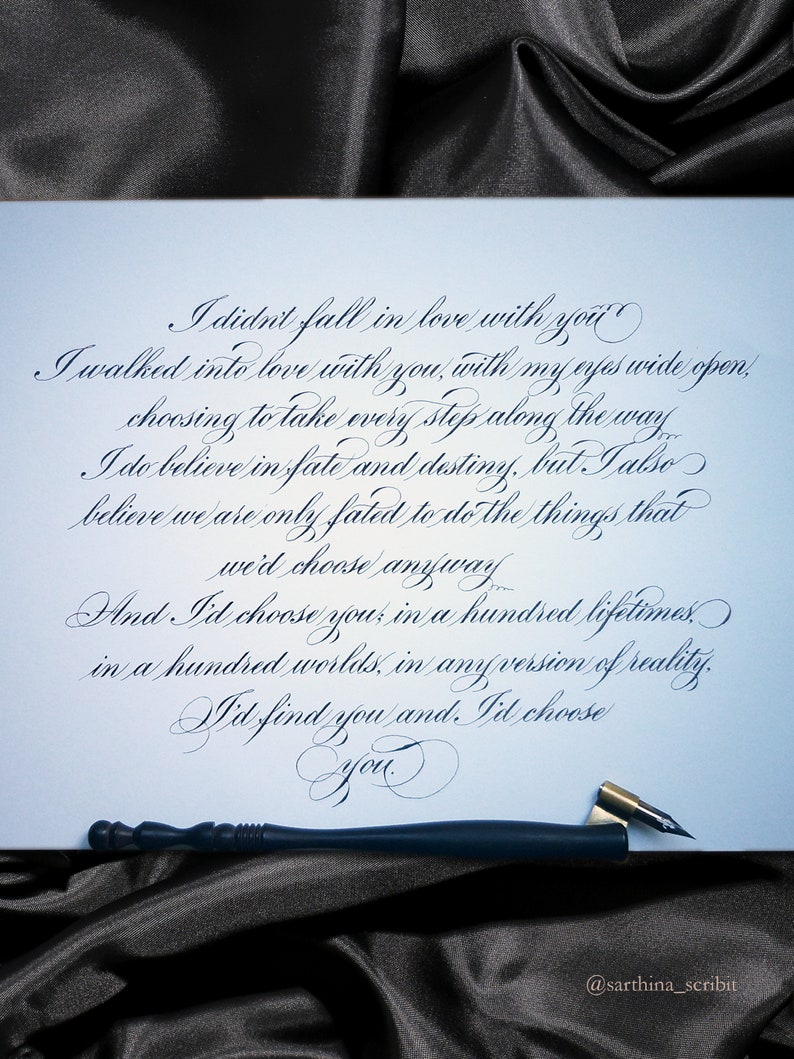 I didn't fall in love with you
I walked into love with you, with my eyes wide open,
choosing to take every step along the way
I do believe in fate and destiny, but I also
believe we are only fated to do the things that
we'd choose anyway
And I'd choose you; in a hundred lifetimes,
in a hundred worlds, in any version of reality,
I'd find you and I'd choose
you.
@sarthina_scribit